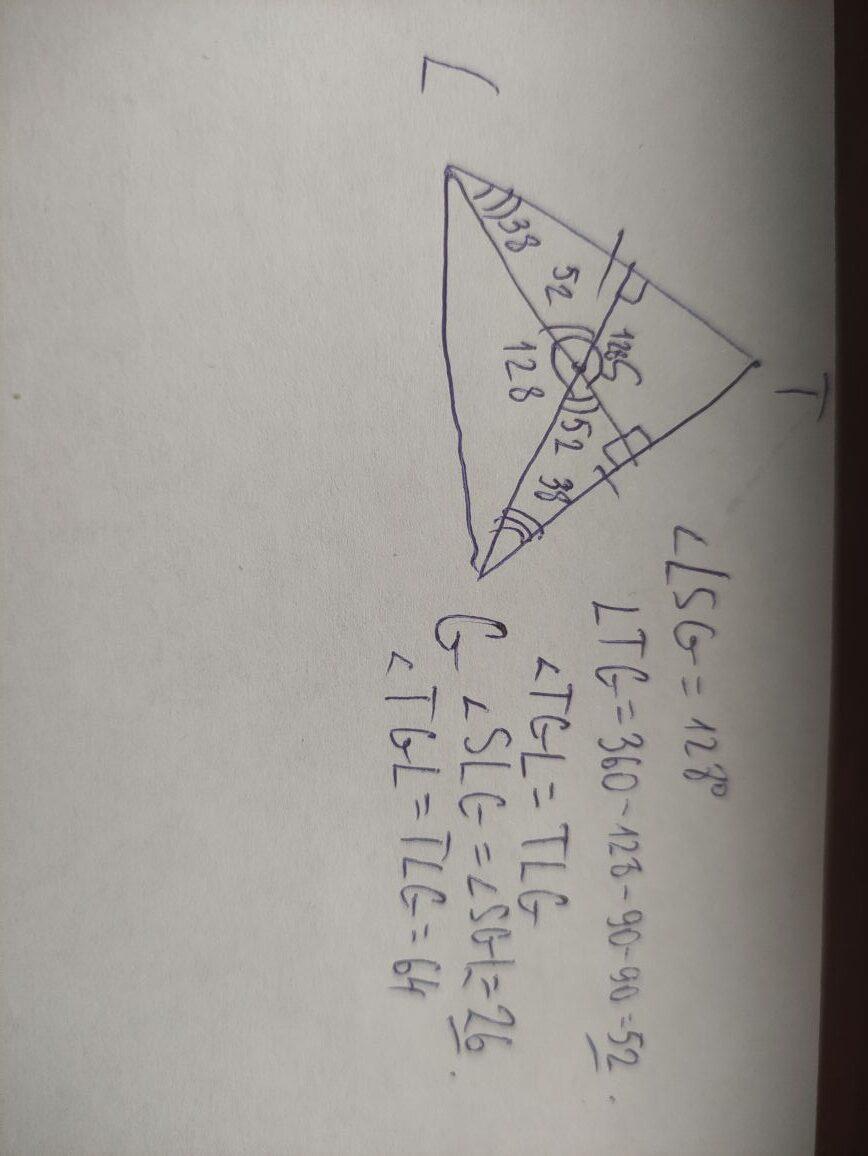 L
T
38
52
128
S
128
52
38
G
∠LSG = 128°
LTG = 360 - 128 - 90 - 90 = 52.
∠TGL = TLG
∠SLG = ∠SGL = 26.
∠TGL = TLG = 64